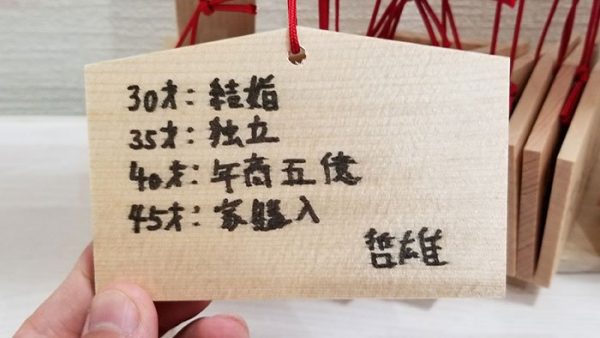 30才:結婚
35才:独立
40才:年商五億
45才:家購入
哲雄